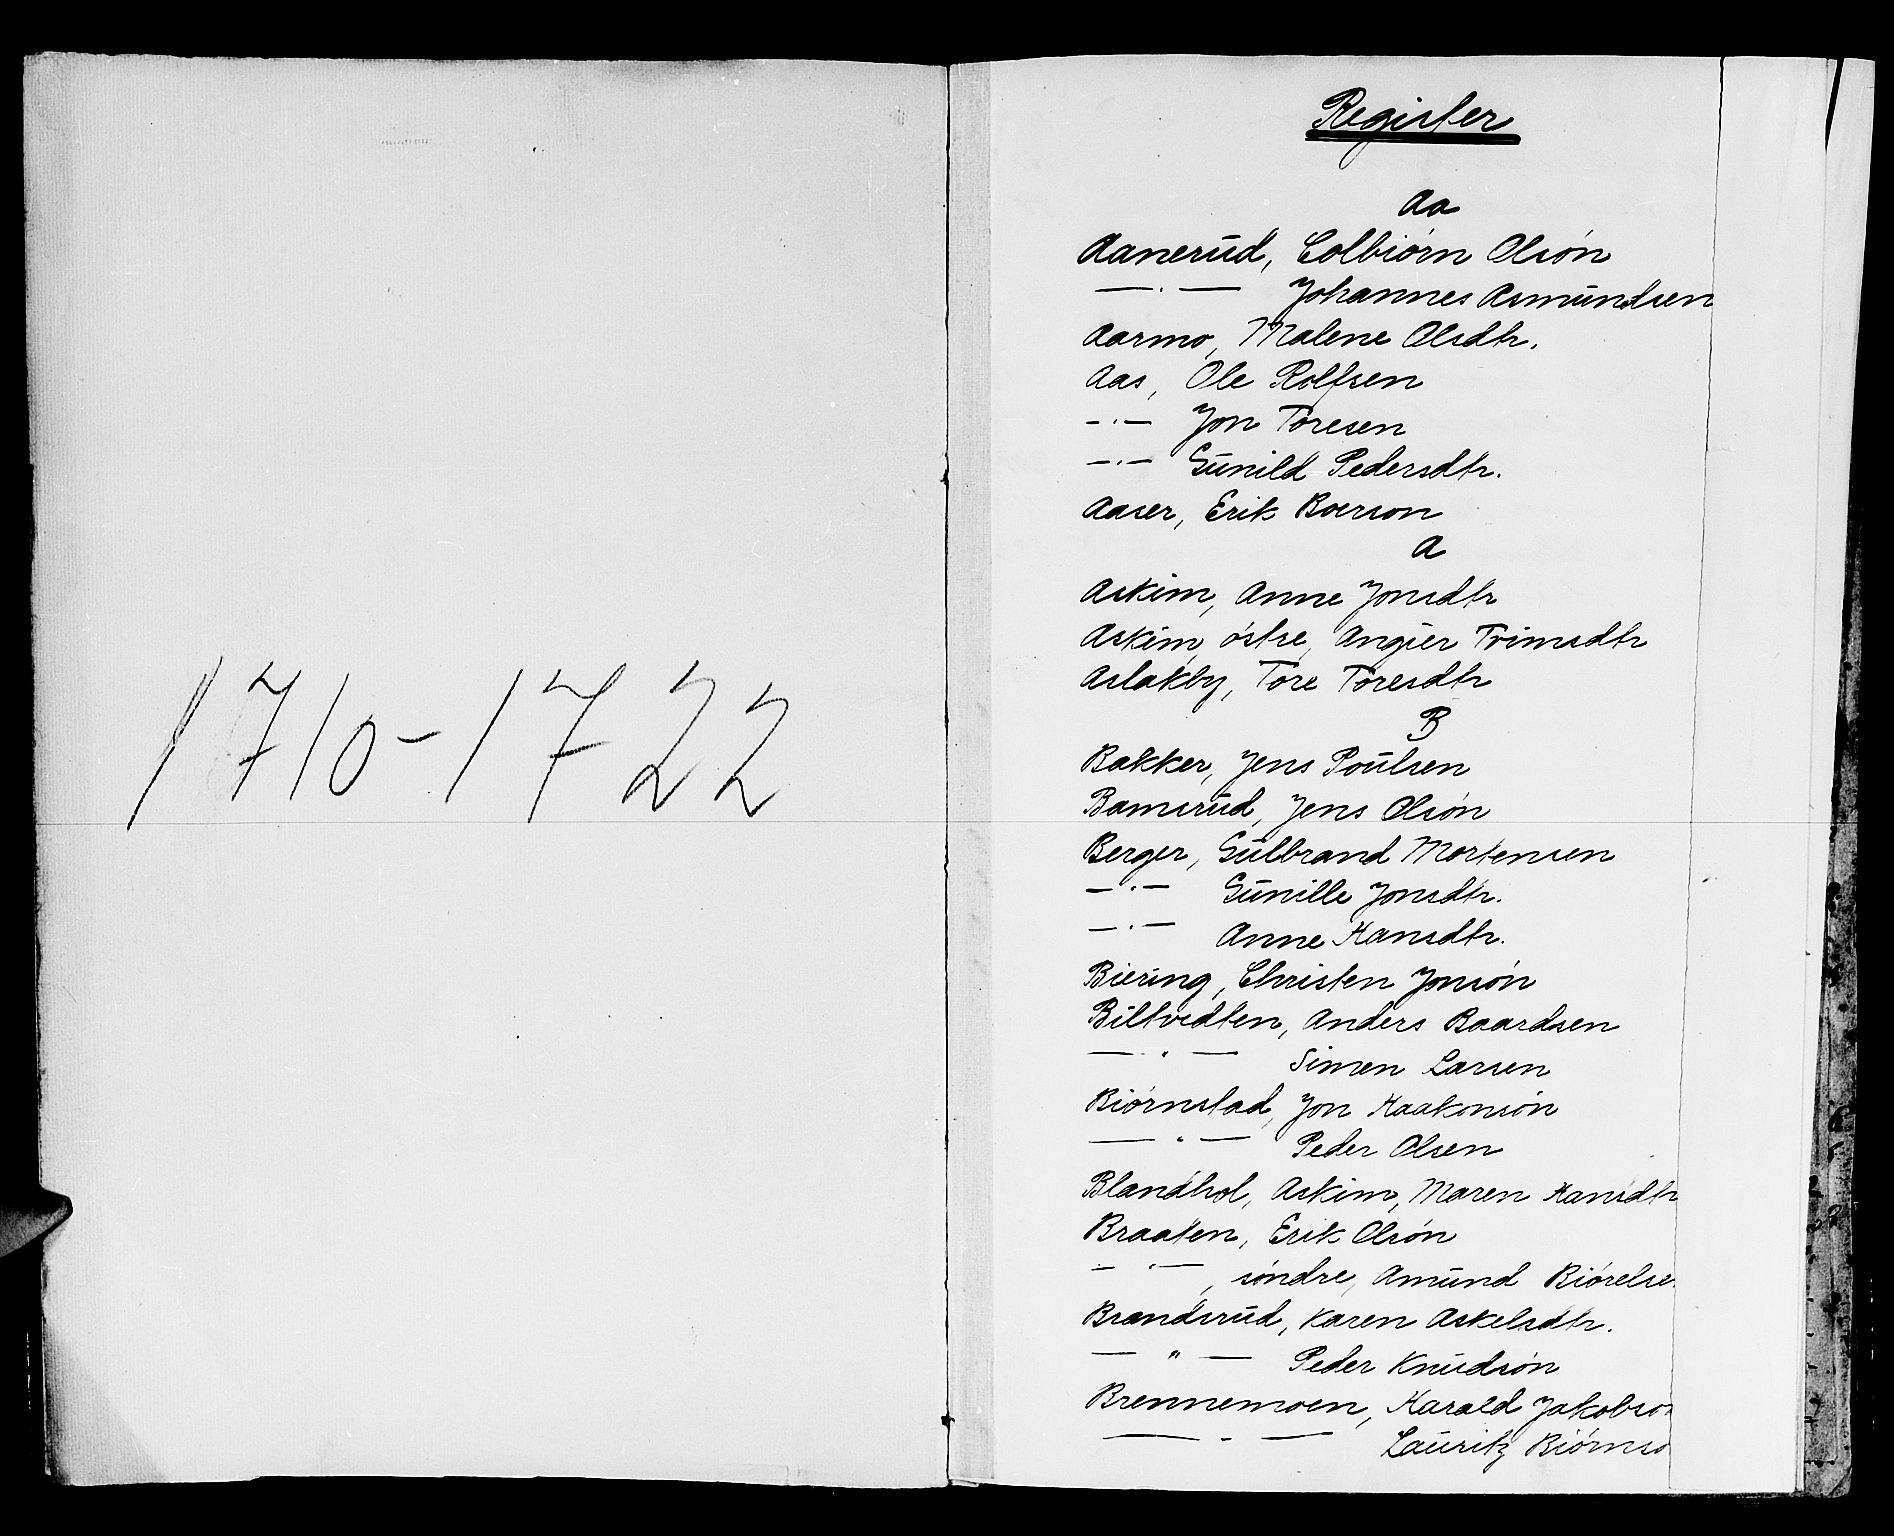 1710-1722
Register
Aa
Aanerud, Colbiørn Olsøn
— . — Johannes Asmundsen
Aarmo, Malene Olsdtr.
Aas, Ole Rolfsen
- . — Jon Toresen
— . — Gunild Pedersdtr.
Aaser, Erik Boerson
A
Askim, Anne Jonsdtr
Askim, østre, Angier Trimsdtr
Aslakby, Tore Toresdtr
B
Bakker, Jens Poulsen
Bamsrud, Jens Olsøn
Berger, Gulbrand Mortensen
— . — Gunille Jonsdtr.
— . — Anne Hansdtr.
Biering, Christen Jonsøn
Biltvedten, Anders Baardsen
— " — Simen Larsen
Biørnstad, Jon Haakonsøn
— " — Peder Olsen
Blandhol, Askim, Maren Hansdtr
Braaten, Erik Olsøn
- " — , søndre, Amund Biørelse
Brandsrud, Karen Askelsdtr.
— " — Peder Knudsøn
Brennemoen, Harald Jakobson
— - — Lauritz Biørnso